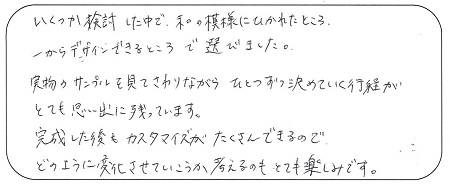 いくつか検討した中で、和の模様にひかれたところ、
一からデザインできるところで選びました。
実物のサンプルを見てさわりながらひとつずつ決めていく行経が
とても思い出に残っています。
完成した後もカスタマイズがたくさんできるので
どのように変化させていこうか考えるのもとても楽しみです。